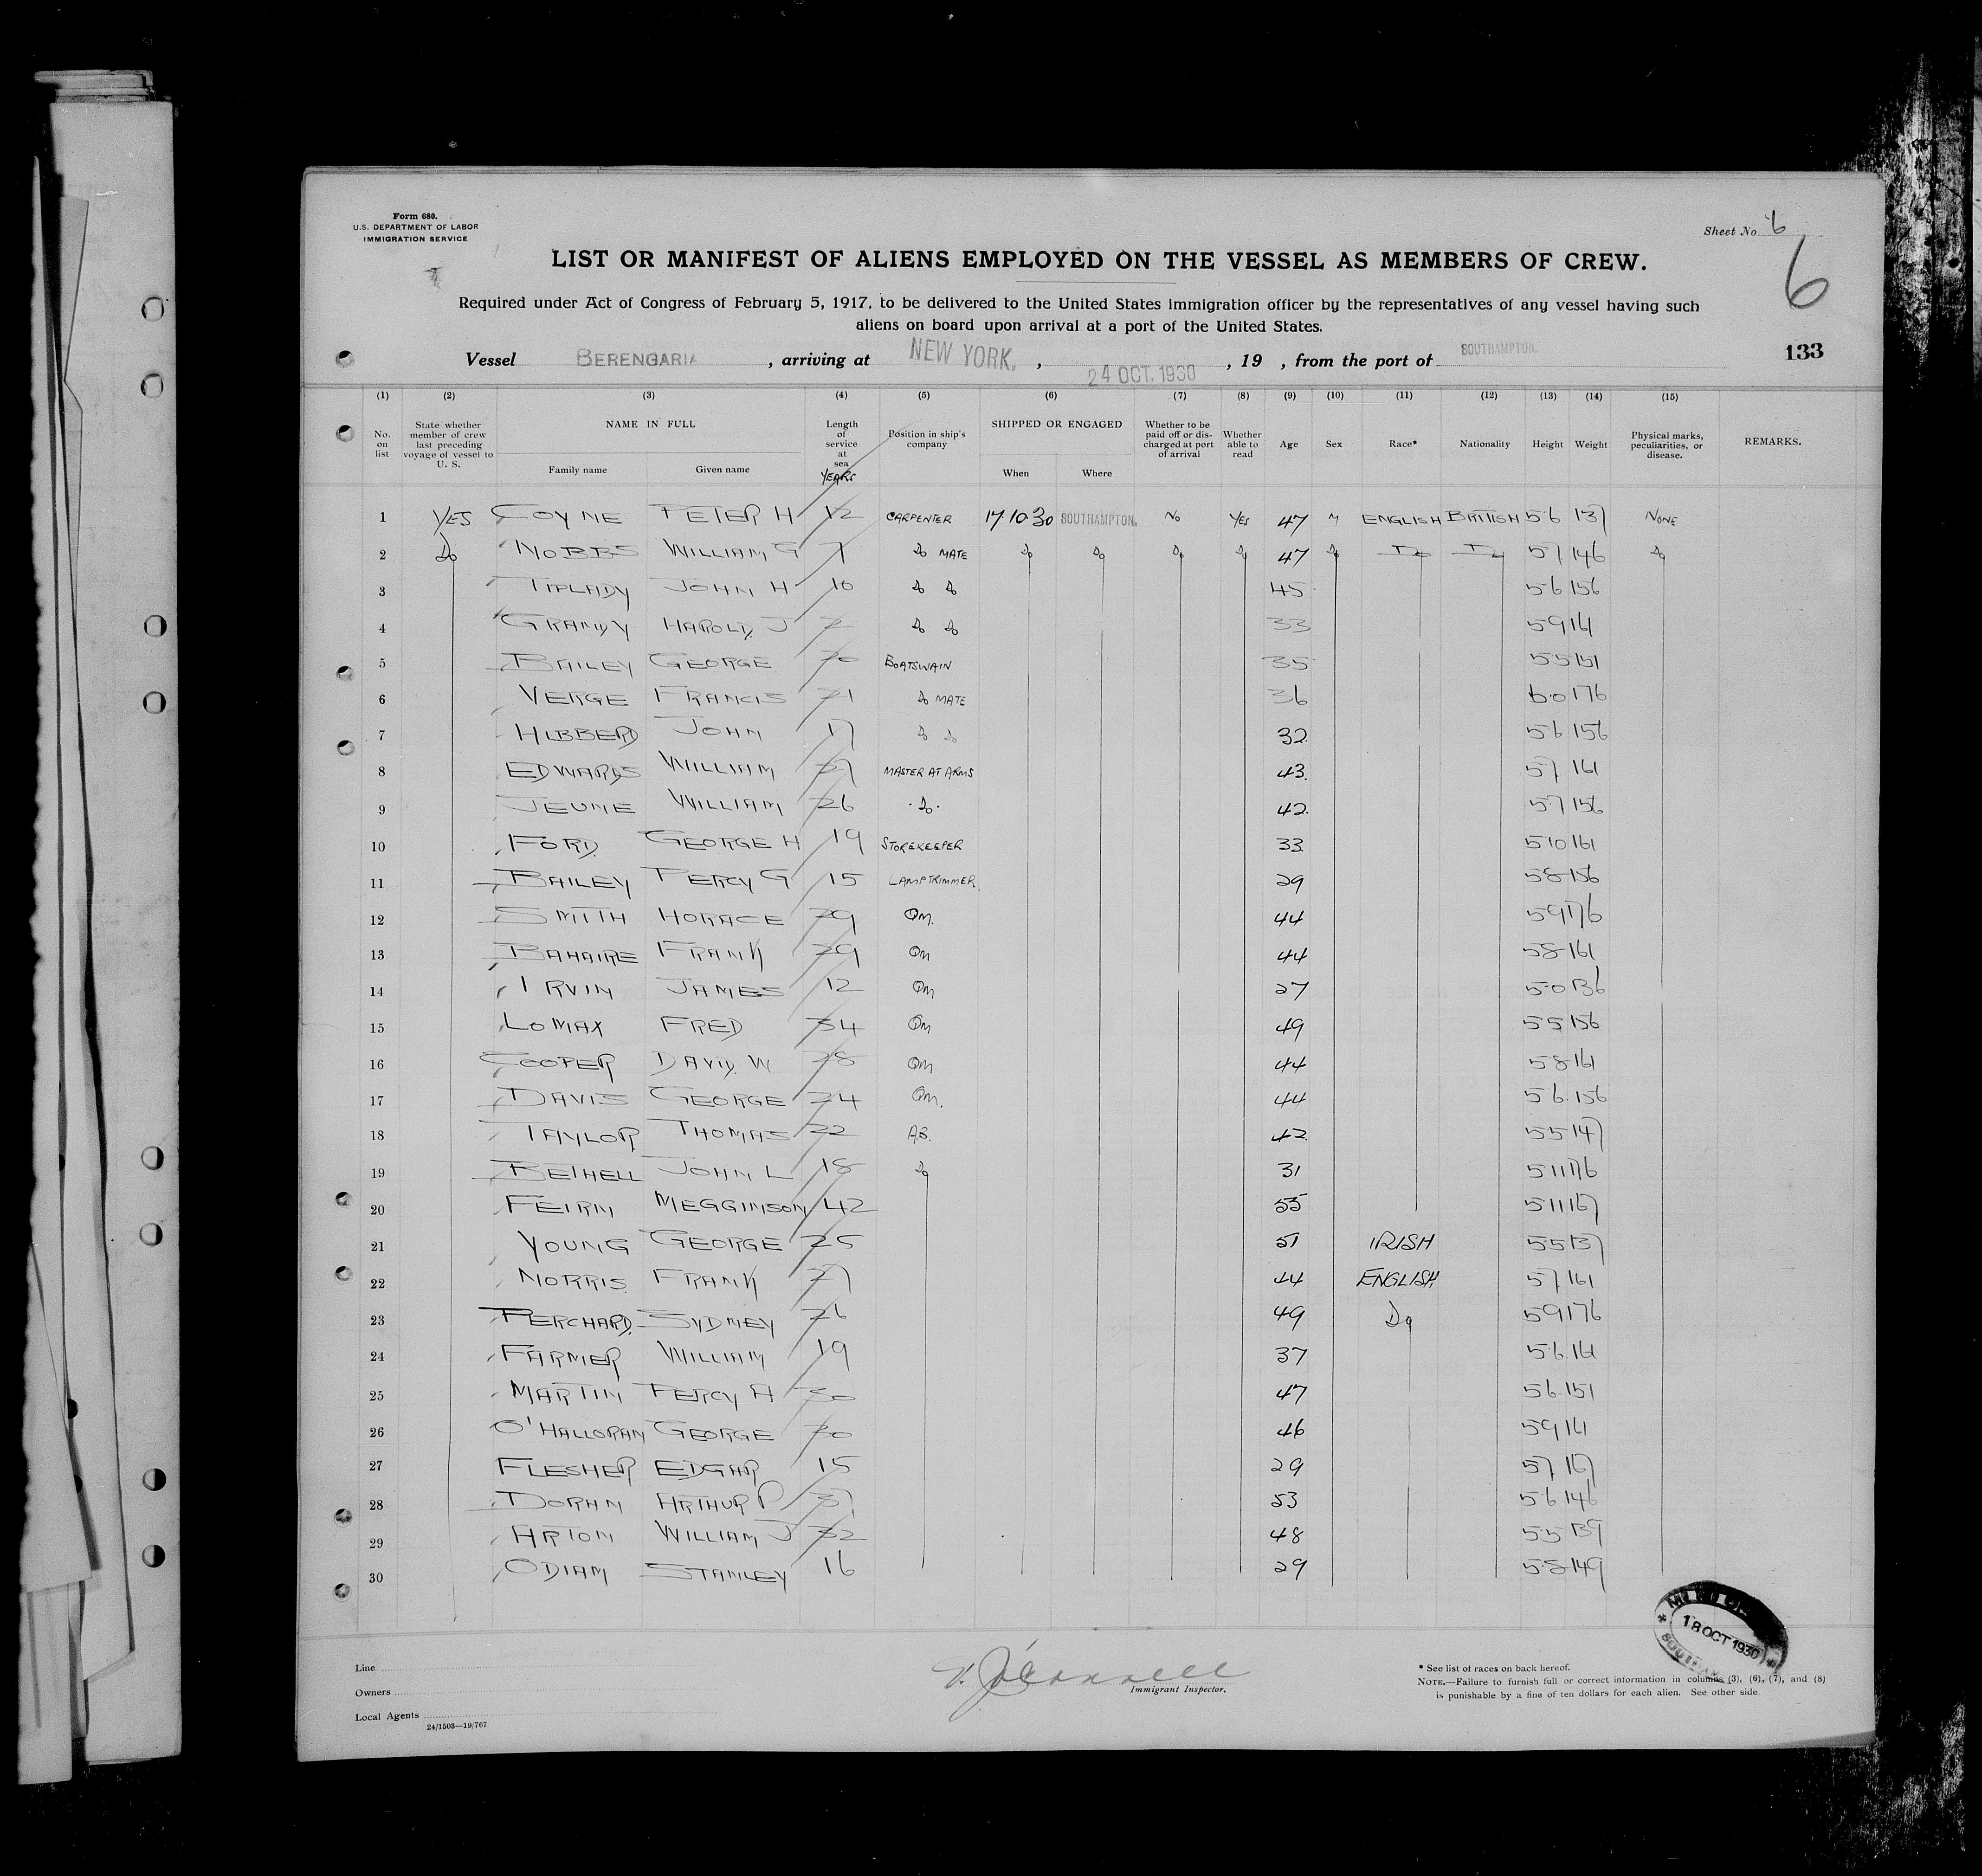 Form 680.
U.S. DEPARTMENT OF LABOR
IMMIGRATION SERVICE
Sheet No. 6
6
LIST OR MANIFEST OF ALIENS EMPLOYED ON THE VESSEL AS MEMBERS OF CREW.
Required under Act of Congress of February 5, 1917, to be delivered to the United States immigration officer by the representatives of any vessel having such
aliens on board upon arrival at a port of the United States.
Vessel BERENGARIA, arriving at NEW YORK, 24 OCT. 1930, 19 , from the port of SOUTHAMPTON. 133
(1) (2) (3) (4) (5) (6) (7) (8) (9) (10) (11) (12) (13) (14) (15)
No. on list State whether member of crew last preceding voyage of vessel to U. S. NAME IN FULL Family name Given name Length of service at sea YEARS Position in ship's company SHIPPED OR ENGAGED When Where Whether to be paid off or discharged at port of arrival Whether able to read Age Sex Race* Nationality Height Weight Physical marks, peculiarities, or disease. REMARKS.
1 YES COYNE PETER H 12 CARPENTER 17 10 30 SOUTHAMPTON. No YES 47 M ENGLISH BRITISH 5 6 137 NONE
2 Do NOBBS WILLIAM G 7 Do MATE Do Do Do Do 47 Do Do Do 5 7 146 Do
3 TIPLADY JOHN H 10 Do Do 45 5 6 156
4 GRANDY HAROLD J Do Do 33 5 9 161
5 BAILEY GEORGE 20 BOATSWAIN 35 5 5 151
6 VERGE FRANCIS 21 Do MATE 36 6 0 176
7 HIBBERD JOHN 17 Do Do 32 5 6 156
8 EDWARDS WILLIAM 27 MASTER AT ARMS 43 5 7 161
9 JEUNE WILLIAM 26 Do 42 5 7 156
10 FORD GEORGE H 19 STOREKEEPER 33 5 10 161
11 BAILEY PERCY G 15 LAMPTRIMMER 29 5 8 156
12 SMITH HORACE 29 QM. 44 5 9 176
13 BAHAIRE FRANK 29 QM 44 5 8 161
14 IRVIN JAMES 12 QM 27 5 0 136
15 LOMAX FRED 34 QM 49 5 5 156
16 COOPER DAVID W 28 QM 44 5 8 161
17 DAVIS GEORGE 24 QM. 44 5 6 156
18 TAYLOR THOMAS 22 A.B. 42 5 5 147
19 BETHELL JOHN L 18 Do 31 5 11 176
20 FEIRN MEGGINSON 42 55 5 11 167
21 YOUNG GEORGE 25 51 IRISH 5 5 137
22 NORRIS FRANK 27 44 ENGLISH 5 7 161
23 PERCHARD SYDNEY 26 49 Do 5 9 176
24 FARMER WILLIAM 19 37 5 6 161
25 MARTIN PERCY A 30 47 5 6 151
26 O'HALLORAN GEORGE 20 46 5 9 161
27 FLESHER EDGAR 15 29 5 7 167
28 DORAN ARTHUR P 37 53 5 6 146
29 ARTON WILLIAM J 32 48 5 5 139
30 ODIAM STANLEY 16 29 5 8 149
18 OCT 1930
Line
Owners
Local Agents
24/1503—19/767
Immigrant Inspector.
* See list of races on back hereof.
NOTE.—Failure to furnish full or correct information in columns (3), (6), (7), and (8)
is punishable by a fine of ten dollars for each alien. See other side.